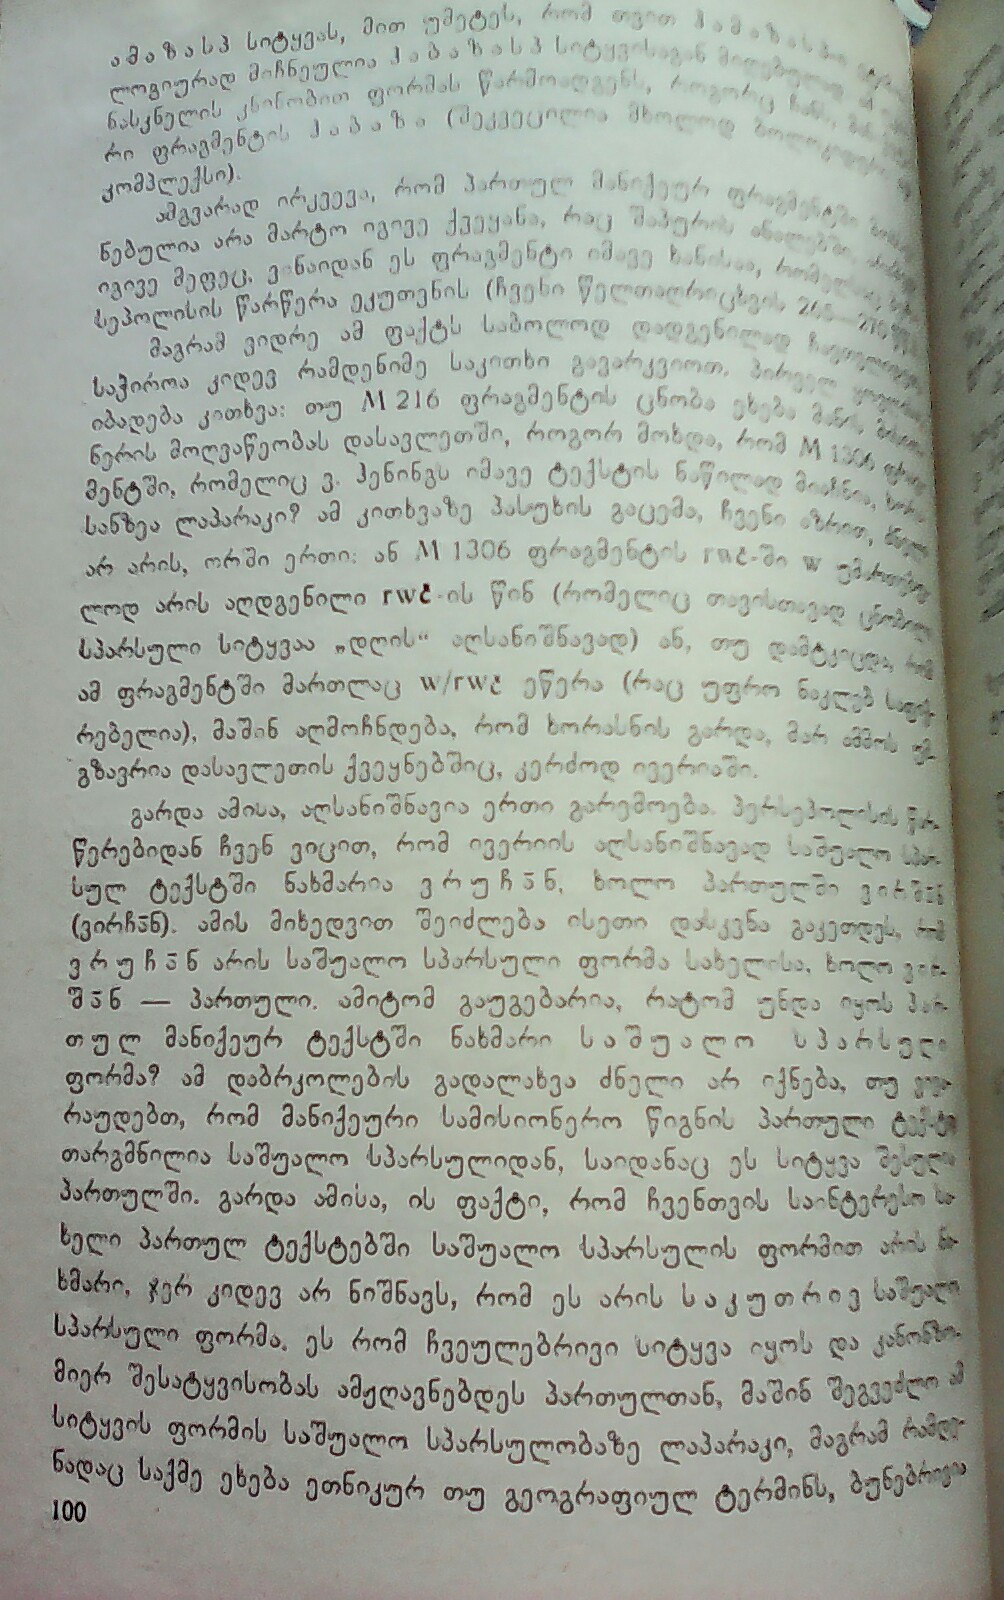 ამაზასპ სიტყვას, მით უმეტეს, რომ თვით ჰამაზასპი
ლოგიურად მიჩნეულია ჰაბაზასპ სიტყვისაგან მიღებულად
ნასკნელის კნინობით ფორმას წარმოადგენს, როგორც
რი ფრაგმენტის ჰაბაზა (შეკვეცილია მხოლოდ ბოლოკიდური
კომპლექსი).
ამგვარად ირკვევა, რომ პართულ მანიქეურ ფრაგმენტში
ნებულია არა მარტო იგივე ქვეყანა, რაც შაპურის ანალებში,
იგივე მეფეც, ვინაიდან ეს ფრაგმენტი იმავე ხანისაა,
სეპოლისის წარწერა ეკუთვნის (ჩვენი წელთაღრიცხვის
მაგრამ ვიდრე ამ ფაქტს საბოლოდ დადგენილად
საჭიროა კიდევ რამდენიმე საკითხი გავარკვიოთ. პირველ
იბადება კითხვა: თუ M 216 ფრაგმენტის ცნობა ეხება
ნერის მოღვაწეობას დასავლეთში, როგორ მოხდა, რომ M 1306
მენტში, რომელიც ვ. ჰენინგს იმავე ტექსტის ნაწილად მიაჩნია,
სანზეა ლაპარაკი? ამ კითხვაზე პასუხის გაცემა, ჩვენი აზრით, ძნელი
არ არის, ორში ერთი: ან M 1306 ფრაგმენტის rwč-ში w
ლოდ არის აღდგენილი rwč-ის წინ (რომელიც თავისთავად ცნობილი
სპარსული სიტყვაა „დღის“ აღსანიშნავად) ან, თუ დამტკიცდა, რომ
ამ ფრაგმენტში მართლაც w/rwč ეწერა (რაც უფრო ნაკლებ
რებელია), მაშინ აღმოჩნდება, რომ ხორასნის გარდა, მარ ამმოს
გზავრია დასავლეთის ქვეყნებშიც, კერძოდ ივერიაში.
გარდა ამისა, აღსანიშნავია ერთი გარემოება. პერსეპოლისის წარ-
წერებიდან ჩვენ ვიცით, რომ ივერიის აღსანიშნავად საშუალო სპარ-
სულ ტექსტში ნახმარია ვრუჩა̄ნ, ხოლო პართულში ვირშა̄ნ
(ვირჩა̄ნ). ამის მიხედვით შეიძლება ისეთი დასკვნა გაკეთდეს, რომ
ვრუჩა̄ნ არის საშუალო სპარსული ფორმა სახელისა, ხოლო ვირ-
შა̄ნ — პართული. ამიტომ გაუგებარია, რატომ უნდა იყოს პარ-
თულ მანიქეურ ტექსტში ნახმარი საშუალო სპარსული
ფორმა? ამ დაბრკოლების გადალახვა ძნელი არ იქნება, თუ ვივა-
რაუდებთ, რომ მანიქეური სამისიონერო წიგნის პართული ტექსტი
თარგმნილია საშუალო სპარსულიდან, საიდანაც ეს სიტყვა შესულა
პართულში. გარდა ამისა, ის ფაქტი, რომ ჩვენთვის საინტერესო სა-
ხელი პართულ ტექსტებში საშუალო სპარსულის ფორმით არის ნა-
ხმარი, ჯერ კიდევ არ ნიშნავს, რომ ეს არის საკუთრივ საშუალო
სპარსული ფორმა. ეს რომ ჩვეულებრივი სიტყვა იყოს და კანონზო-
მიერ შესატყვისობას ამჟღავნებდეს პართულთან, მაშინ შეგვეძლო ამ
სიტყვის ფორმის საშუალო სპარსულობაზე ლაპარაკი, მაგრამ რამდე-
ნადაც საქმე ეხება ეთნიკურ თუ გეოგრაფიულ ტერმინს, ბუნებრივია
100